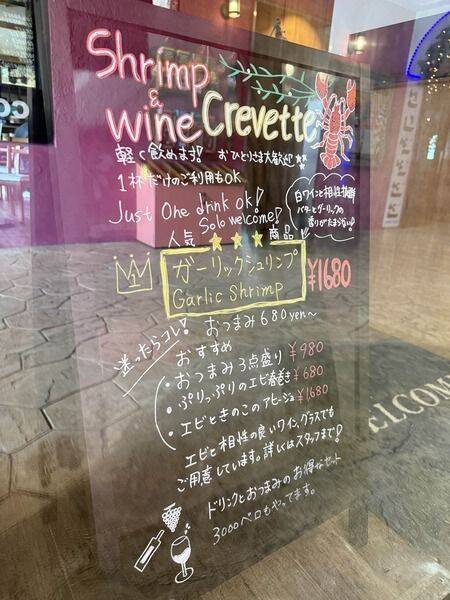 Shrimp
&
wine Crevette
軽く飲めます! おひとりさま大歓迎
1杯だけのご利用もOK
Just One drink ok!
Solo welcome!
白ワインと相性抜群
バターとガーリックの
香りがたまらない!
人気 商品
1
ガーリックシュリンプ ¥1680
Garlic Shrimp
おつまみ680yen〜
迷ったらコレ!
おすすめ
・おつまみ3点盛り ¥980
・ぷりっぷりのエビ春巻き ¥680
・エビときのこのアヒージョ ¥1680
エビと相性の良いワイン、グラスでも
ご用意しています。詳しくはスタッフまで!
ドリンクとおつまみのお得なセット
3000ベロもやってます。
ELCOME